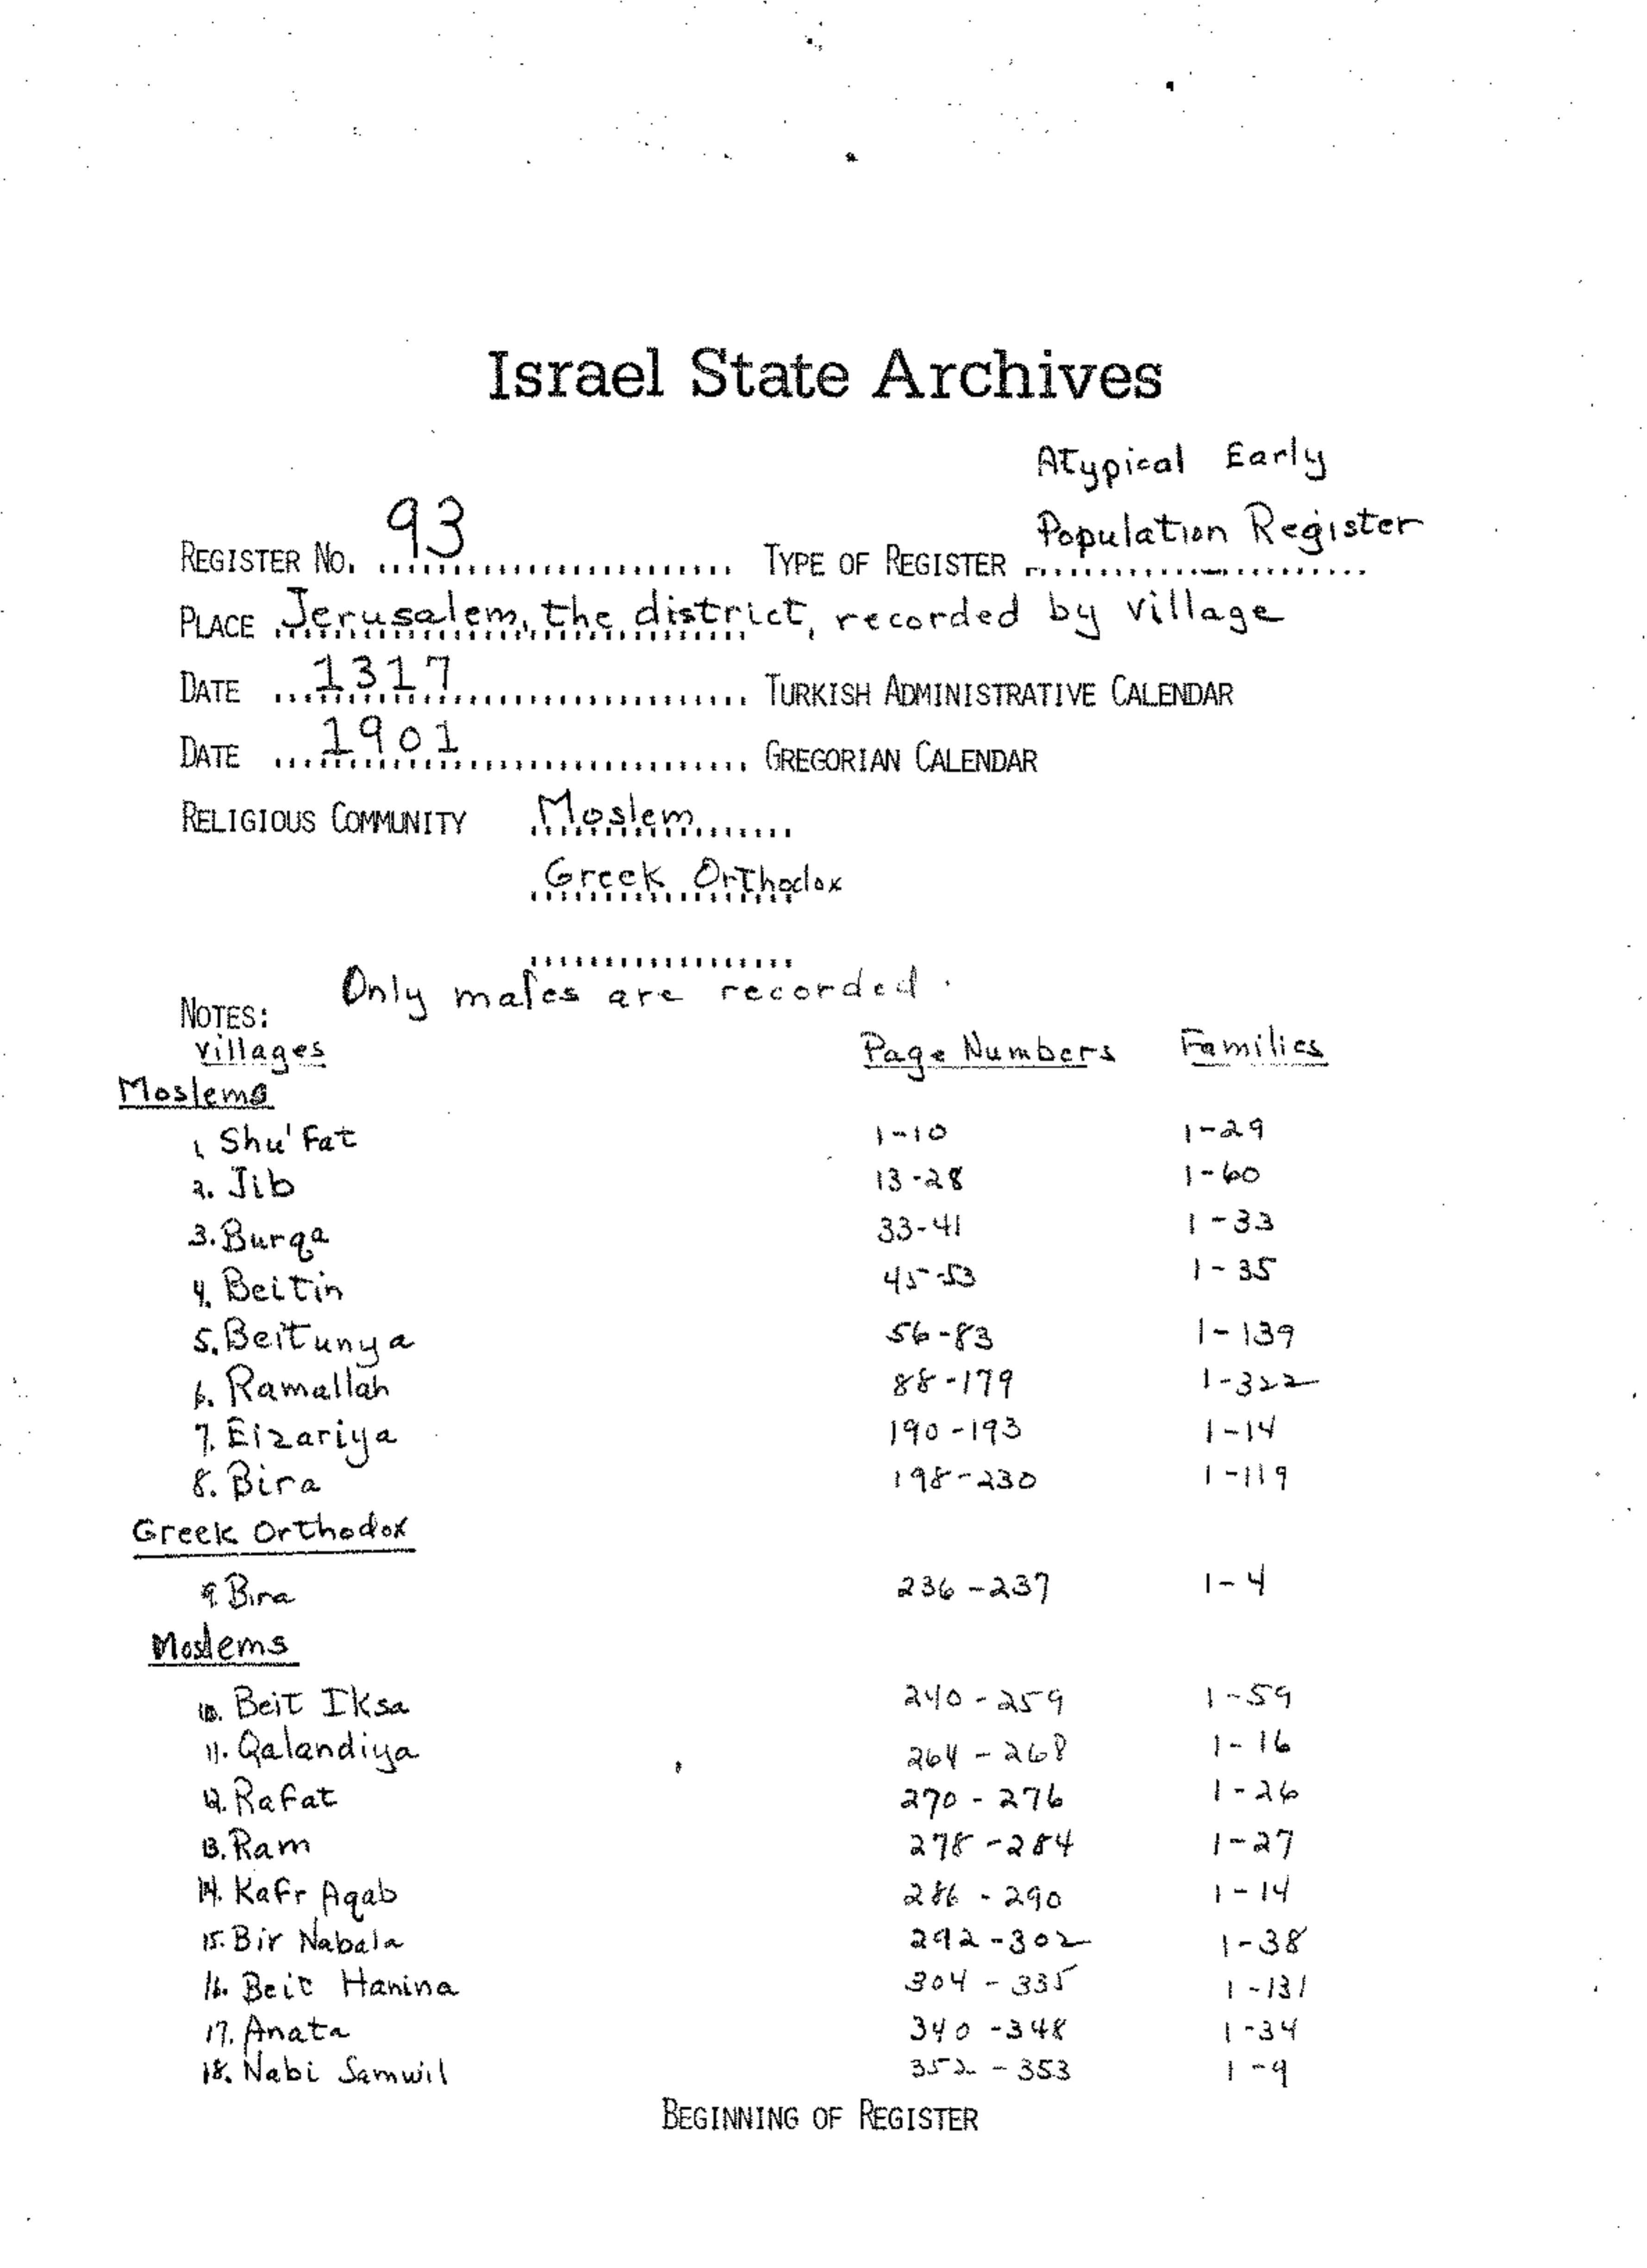 Israel State Archives
Atypical Early
REGISTER NO. 93 TYPE OF REGISTER Population Register
PLACE Jerusalem, the district, recorded by village
DATE 1317 TURKISH ADMINISTRATIVE CALENDAR
DATE 1901 GREGORIAN CALENDAR
RELIGIOUS COMMUNITY Moslem
Greek Orthodox
NOTES: Only males are recorded.
Villages Page Numbers Families
Moslems
1. Shu'fat 1-10 1-29
2. Jib 13-28 1-60
3. Burqa 33-41 1-33
4. Beitin 45-53 1-35
5. Beitunya 56-83 1-139
6. Ramallah 88-179 1-322
7. Eizariya 190-193 1-14
8. Bira 198-230 1-119
Greek Orthodox
9. Bira 236-237 1-4
Moslems
10. Beit Iksa 240-259 1-59
11. Qalandiya 264-268 1-16
12. Rafat 270-276 1-26
13. Ram 278-284 1-27
14. Kafr Aqab 286-290 1-14
15. Bir Nabala 292-302 1-38
16. Beit Hanina 304-335 1-131
17. Anata 340-348 1-34
18. Nabi Samwil 352-353 1-9
BEGINNING OF REGISTER